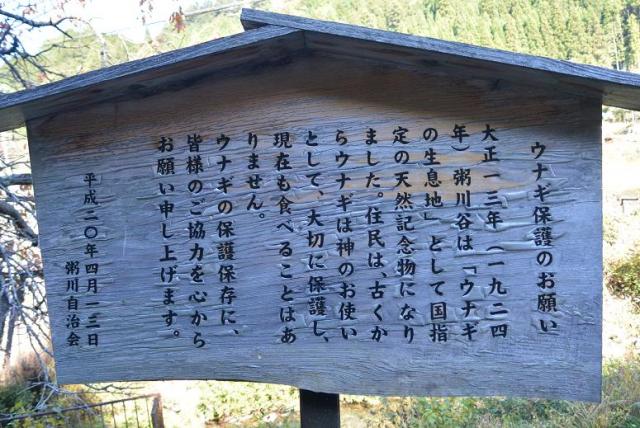 ウナギ保護のお願い
大正一三年（一九二四
年）粥川谷は「ウナギ
の生息地」として国指
定の天然記念物になり
ました。住民は、古くか
らウナギは神のお使い
として、大切に保護し、
現在も食べることはあ
りません。
ウナギの保護保存に、
皆様のご協力を心から
お願い申し上げます。
平成二〇年四月一三日
粥川自治会